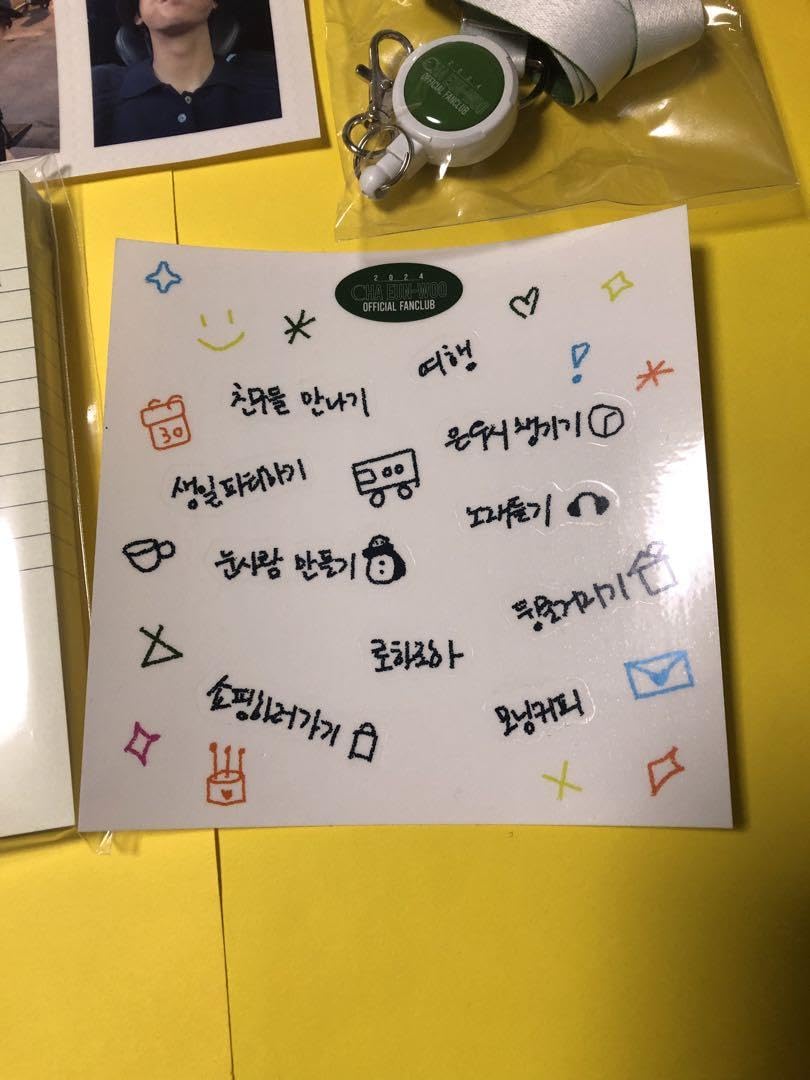 2024
CHA EUN-WOO
OFFICIAL FANCLUB
2024
CHA EUN-WOO
OFFICIAL FANCLUB
여행
친구들 만나기
은우시 챙기기
생일파티하기
노래듣기
눈사람 만들기
방꾸미기
로하로하
쇼핑하러가기
모닝커피
30